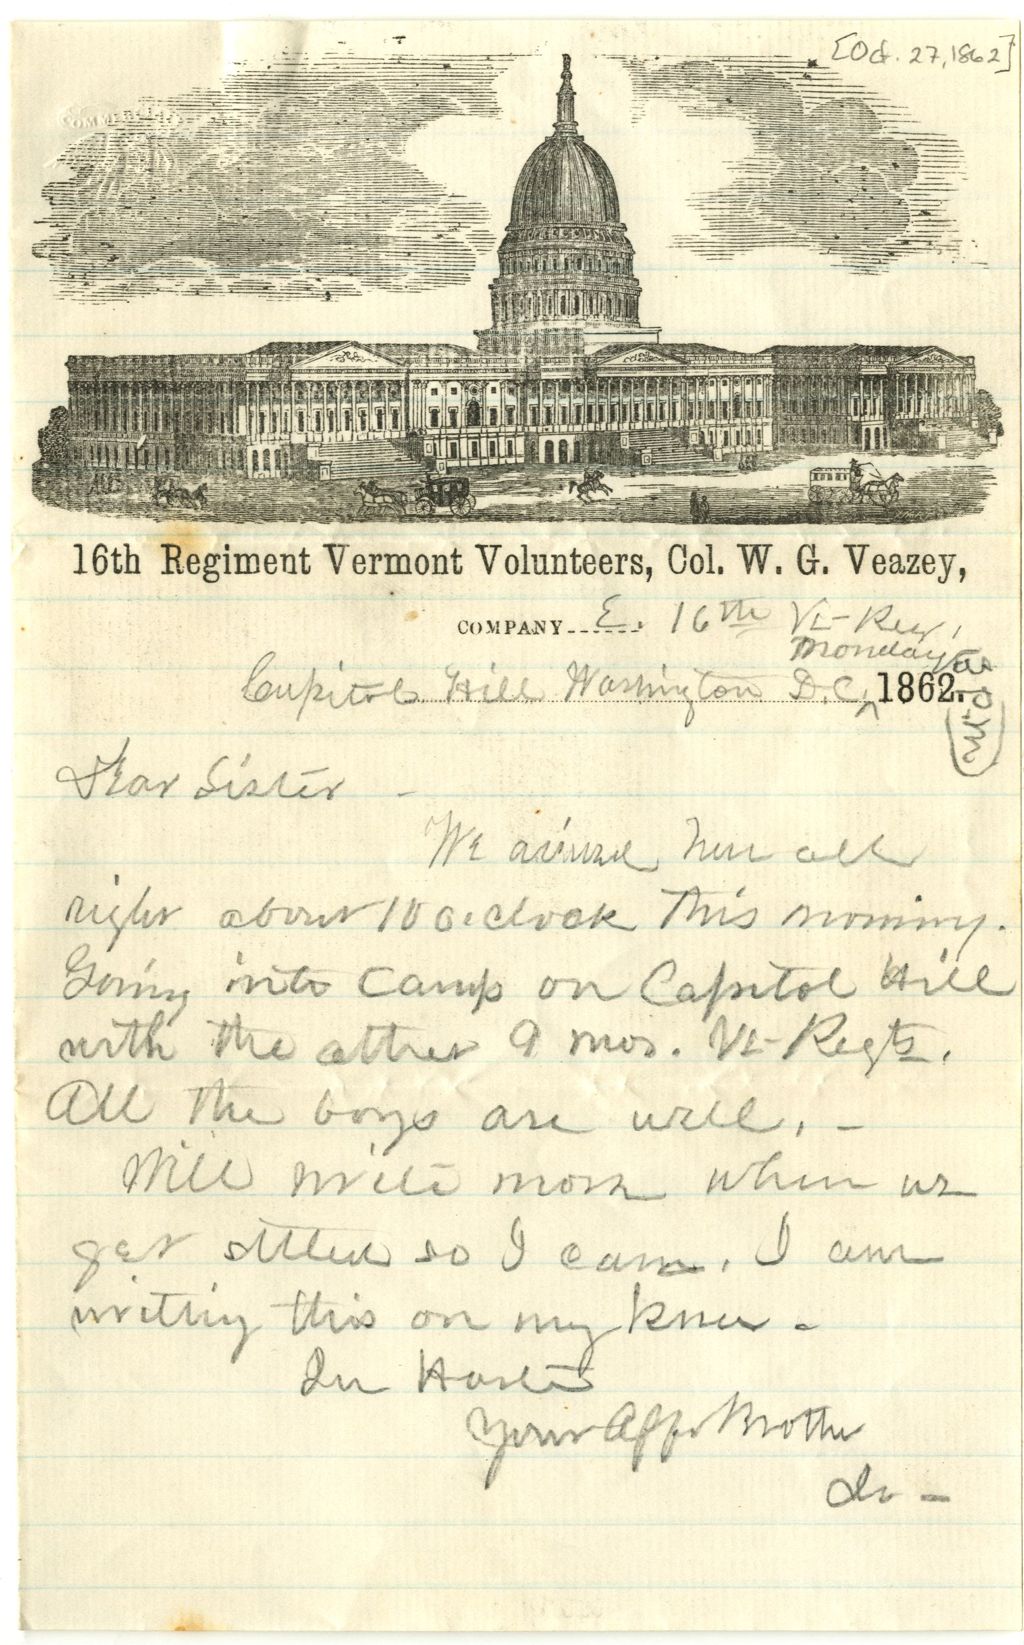 [Oct. 27, 1862]
16th Regiment Vermont Volunteers, Col. W. G. Veazey,
COMPANY E. 16th Vt Reg,
Monday
Capitol Hill Washington D.C. 1862.
Dear Sister -
We arived here all
right about 10 o.clock this morning.
Going into camp on Capitol Hill
with the other 9 mos. Vt Regts.
All the boys are well. -
Will write more when we
get settled so I can. I am
writing this on my knee -
In Haste
Your Aff. Brother